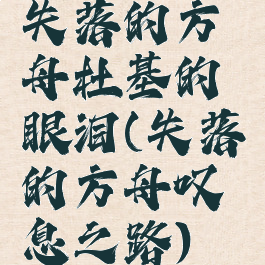 失落的方
舟杜基的
眼泪(失落
的方舟叹
息之路)